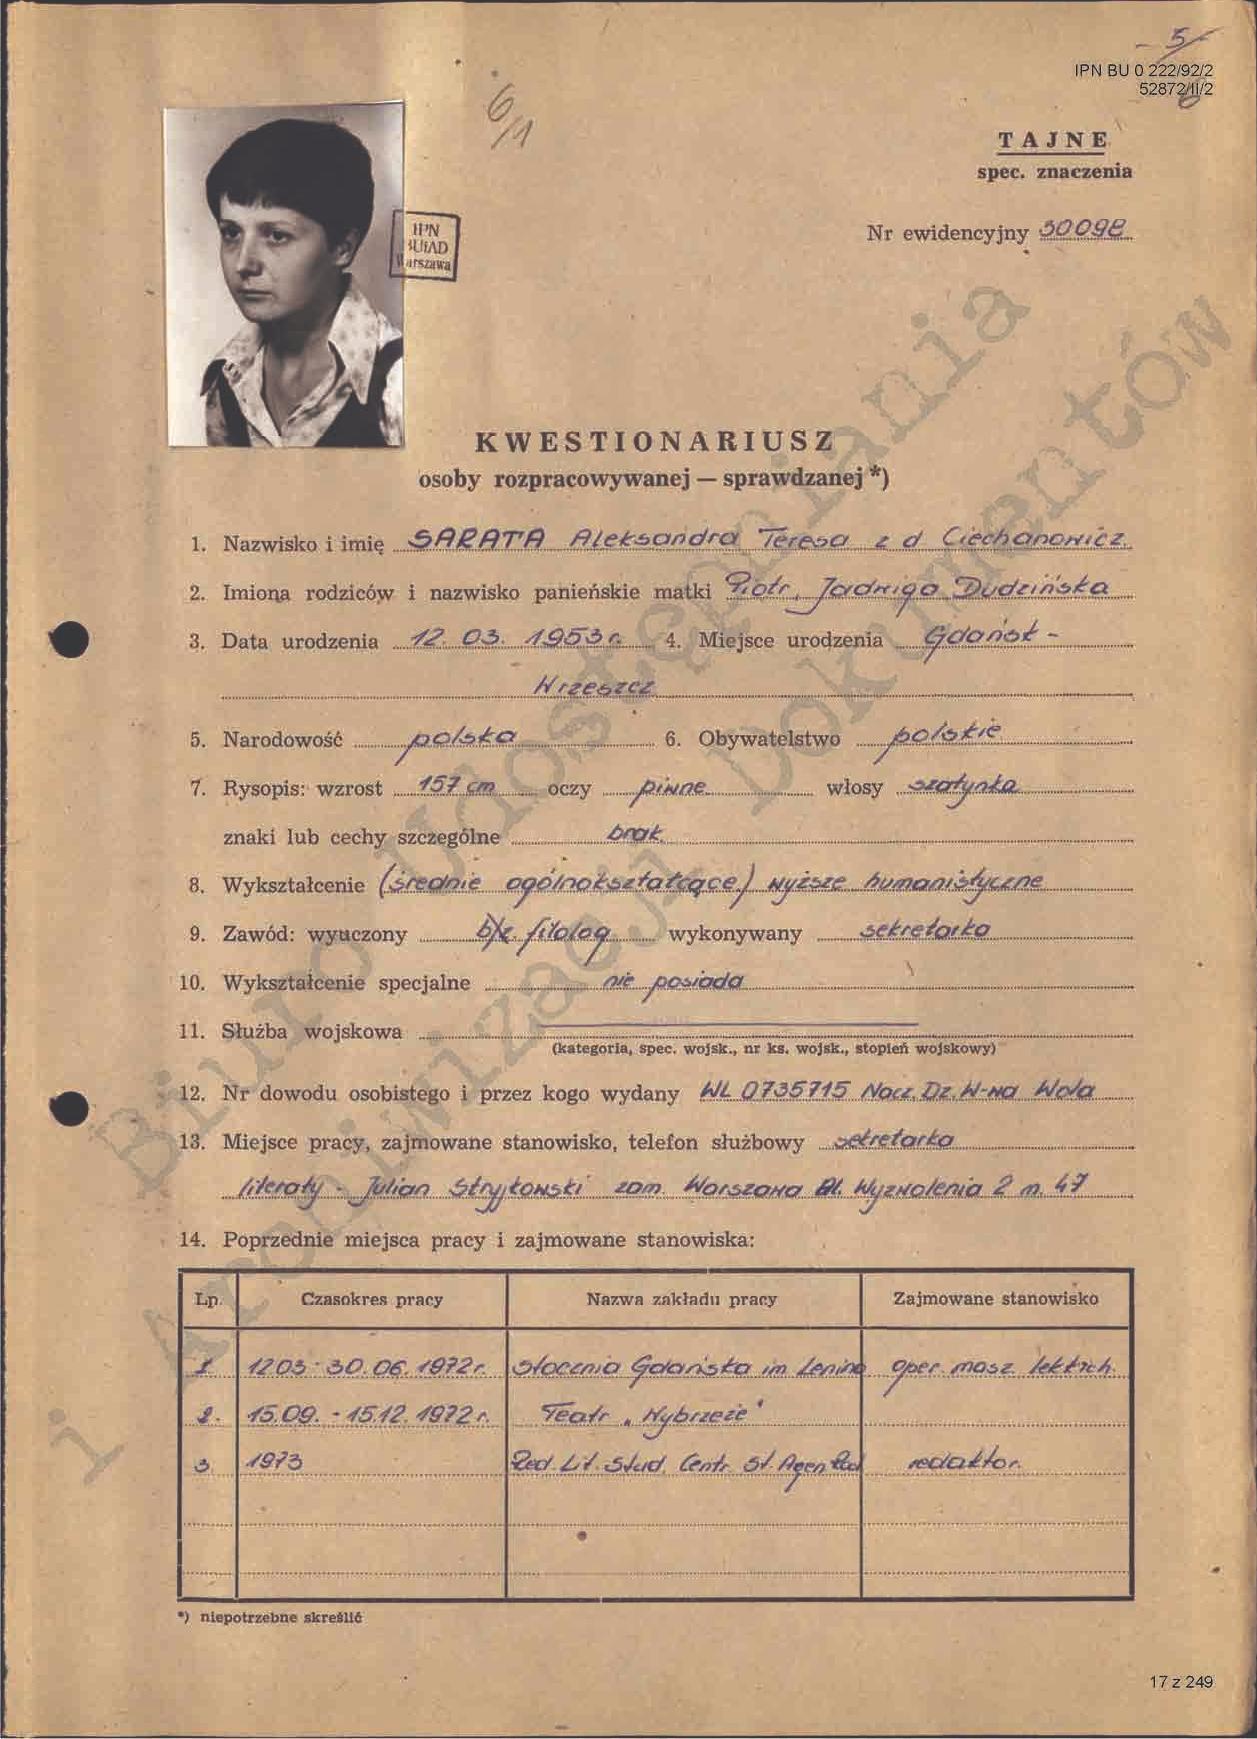 - 5 -
IPN BU 0 222/92/2
52872/II/2
6
6/1
TAJNE
spec. znaczenia
IPN
BUiAD
Warszawa
Nr ewidencyjny 30098
KWESTIONARIUSZ
osoby rozpracowywanej — sprawdzanej *)
1. Nazwisko i imię SARATA Aleksandra Teresa z d Ciechanowicz
2. Imiona rodziców i nazwisko panieńskie matki Piotr, Jadwiga Dudzińska
3. Data urodzenia 12. 03. 1953 r. 4. Miejsce urodzenia Gdańsk -
Wrzeszcz
5. Narodowość polska 6. Obywatelstwo polskie
7. Rysopis: wzrost 157 cm oczy piwne włosy szatynka
znaki lub cechy szczególne brak.
8. Wykształcenie (średnie ogólnokształcące) wyższe humanistyczne
9. Zawód: wyuczony b/z. filolog wykonywany sekretarka
10. Wykształcenie specjalne nie posiada
11. Służba wojskowa
(kategoria, spec. wojsk., nr ks. wojsk., stopień wojskowy)
12. Nr dowodu osobistego i przez kogo wydany WL 0735715 Nacz. Dz. W-wa Wola
13. Miejsce pracy, zajmowane stanowisko, telefon służbowy sekretarka
literaty - Julian Stryjkowski zam. Warszawa Al. Wyzwolenia 2 m. 47
14. Poprzednie miejsca pracy i zajmowane stanowiska:
Lp. Czasokres pracy Nazwa zakładu pracy Zajmowane stanowisko
1. 1203 - 30.06.1972 r. Stocznia Gdańska im Lenina oper. masz.
2. 15.09. - 15.12.1972 r. Teatr "Wybrzeże"
3. 1973 Red. Lit. Stud. Centr. St. Agen Rad redaktor.
*) niepotrzebne skreślić
17 z 249
Biuro Udostępniania
i Archiwizacji Dokumentów